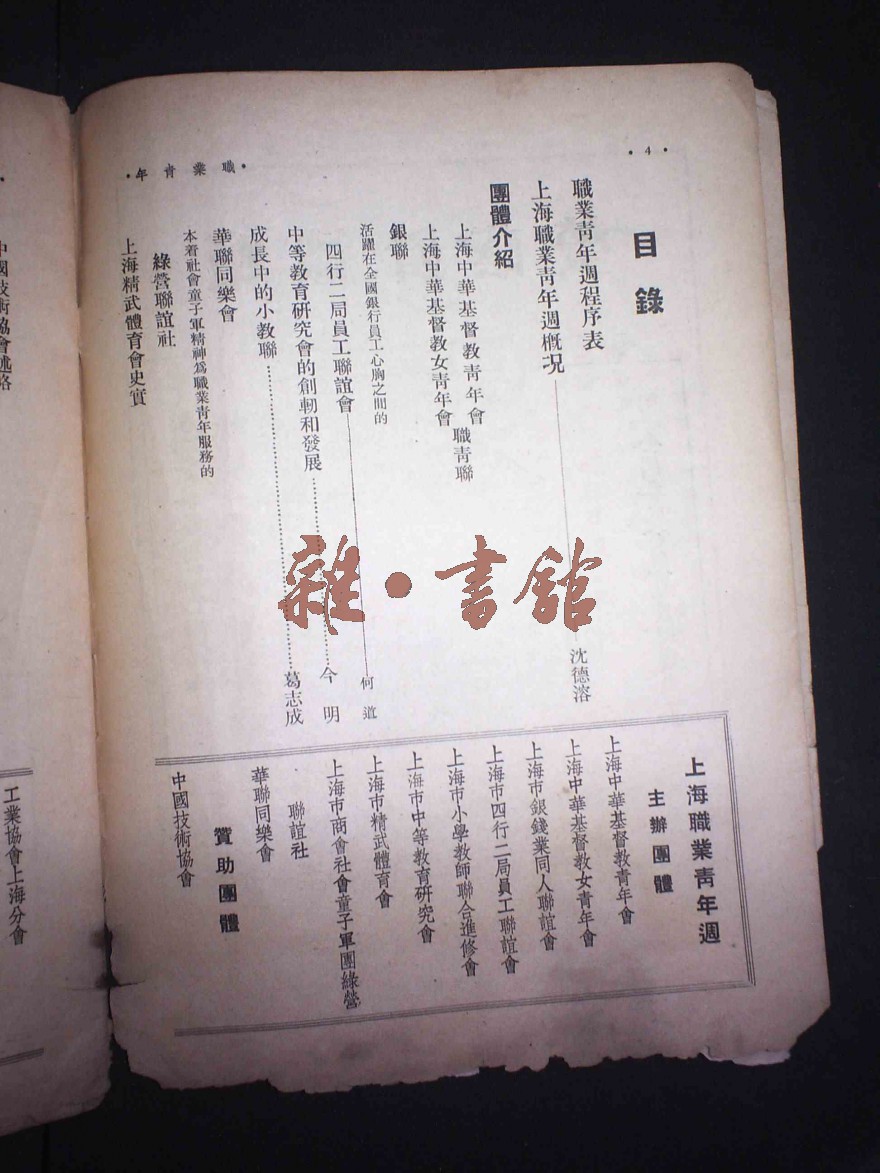 •4•
•職業青年•
目錄
職業靑年週程序表
上海職業靑年週槪況 沈德溶
團體介紹
上海中華基督敎靑年會
上海中華基督敎女靑年會
職靑聯
銀聯
活躍在全國銀行員工心胸之間的
四行二局員工聯誼會 何道
中等敎育硏究會的創軔和發展 今明
成長中的小敎聯 葛志成
華聯同樂會
本着社會童子軍精神爲職業靑年服務的
綠營聯誼社
上海精武體育會史實
上海職業靑年週
主辦團體
上海中華基督敎靑年會
上海中華基督敎女靑年會
上海市銀錢業同人聯誼會
上海市四行二局員工聯誼會
上海市小學敎師聯合進修會
上海市中等敎育硏究會
上海市精武體育會
上海市商會社會童子軍團綠營
聯誼社
華聯同樂會
贊助團體
中國技術協會
中國技術協會述略
工業協會上海分會
雜•書館